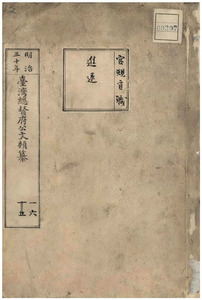 官規官職
進退
明治
三十年
臺灣總督府公文類纂
一六
十五